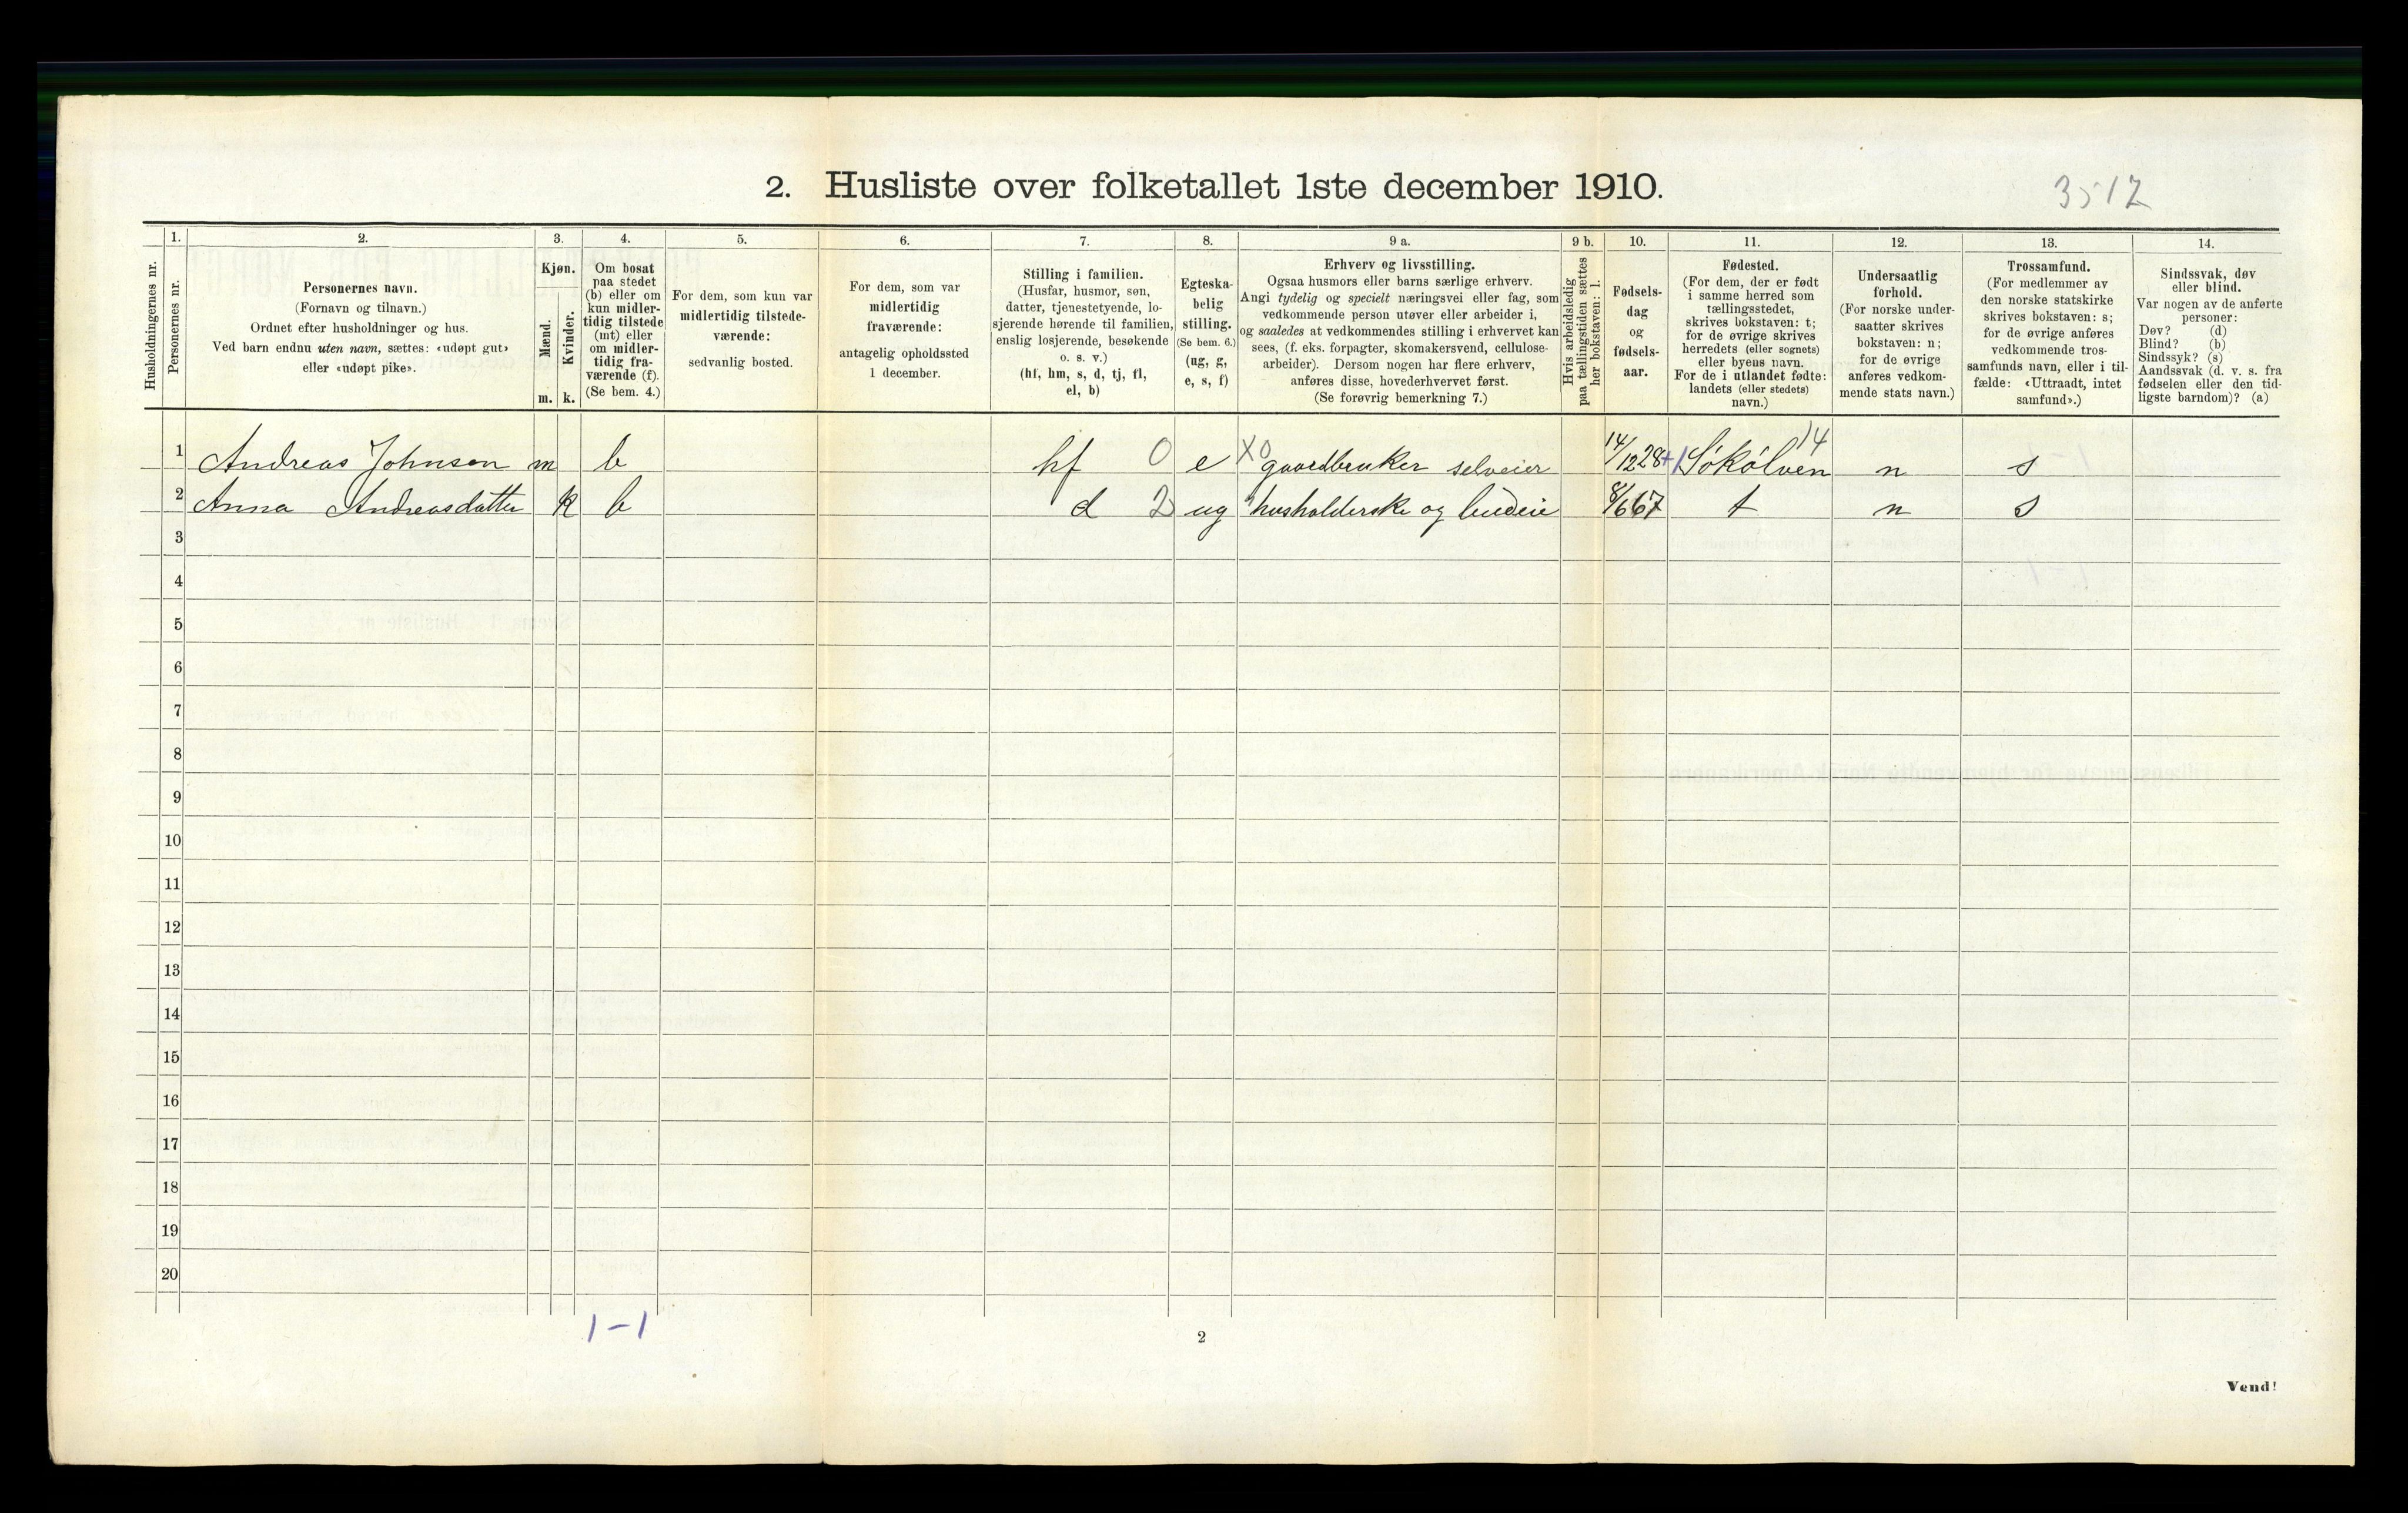 2. Husliste over folketallet 1ste december 1910.
3512
Husholdningernes nr.
1.
Personernes nr.
2.
Personernes navn.
(Fornavn og tilnavn.)
Ordnet efter husholdninger og hus.
Ved barn endnu uten navn, sættes: «udøpt gut»
eller «udøpt pike».
3.
Kjøn.
Mænd.
Kvinder.
m. k.
4.
Om bosat
paa stedet
(b) eller om
kun midler-
tidig tilstede
(mt) eller
om midler-
tidig fra-
værende (f).
(Se bem. 4.)
5.
For dem, som kun var
midlertidig tilstede-
værende:
sedvanlig bosted.
6.
For dem, som var
midlertidig
fraværende:
antagelig opholdssted
1 december.
7.
Stilling i familien.
(Husfar, husmor, søn,
datter, tjenestetyende, lo-
sjerende hørende til familien,
enslig losjerende, besøkende
o. s. v.)
(hf, hm, s, d, tj, fl,
el, b)
8.
Egteska-
belig
stilling.
(Se bem. 6.)
(ug, g,
e, s, f)
9 a.
Erhverv og livsstilling.
Ogsaa husmors eller barns særlige erhverv.
Angi tydelig og specielt næringsvei eller fag, som
vedkommende person utøver eller arbeider i,
og saaledes at vedkommendes stilling i erhvervet kan
sees, (f. eks. forpagter, skomakersvend, cellulose-
arbeider). Dersom nogen har flere erhverv,
anføres disse, hovederhvervet først.
(Se forøvrig bemerkning 7.)
9 b.
Hvis arbeidsledig
paa tællingstiden sættes
her bokstaven: l.
10.
Fødsels-
dag
og
fødsels-
aar.
11.
Fødested.
(For dem, der er født
i samme herred som
tællingsstedet,
skrives bokstaven: t;
for de øvrige skrives
herredets (eller sognets)
eller byens navn.
For de i utlandet fødte:
landets (eller stedets)
navn.)
12.
Undersaatlig
forhold.
(For norske under-
saatter skrives
bokstaven: n;
for de øvrige
anføres vedkom-
mende stats navn.)
13.
Trossamfund.
(For medlemmer av
den norske statskirke
skrives bokstaven: s;
for de øvrige anføres
vedkommende tros-
samfunds navn, eller i til-
fælde: «Uttraadt, intet
samfund».)
14.
Sindssvak, døv
eller blind.
Var nogen av de anførte
personer:
Døv? (d)
Blind? (b)
Sindssyk? (s)
Aandssvak (d. v. s. fra
fødselen eller den tid-
ligste barndom)? (a)
1 Andreas Johnsen m b hf 0 e X0 gaardbruker selveier 14/12 28 +1 Søkølven 14 n s
2 Anna Andreasdatter k b d 2 ug husholderske og budeie 8/6 67 t n s
3
4
5
6
7
8
9
10
11
12
13
14
15
16
17
18
19
20
1-1
2
Vend!